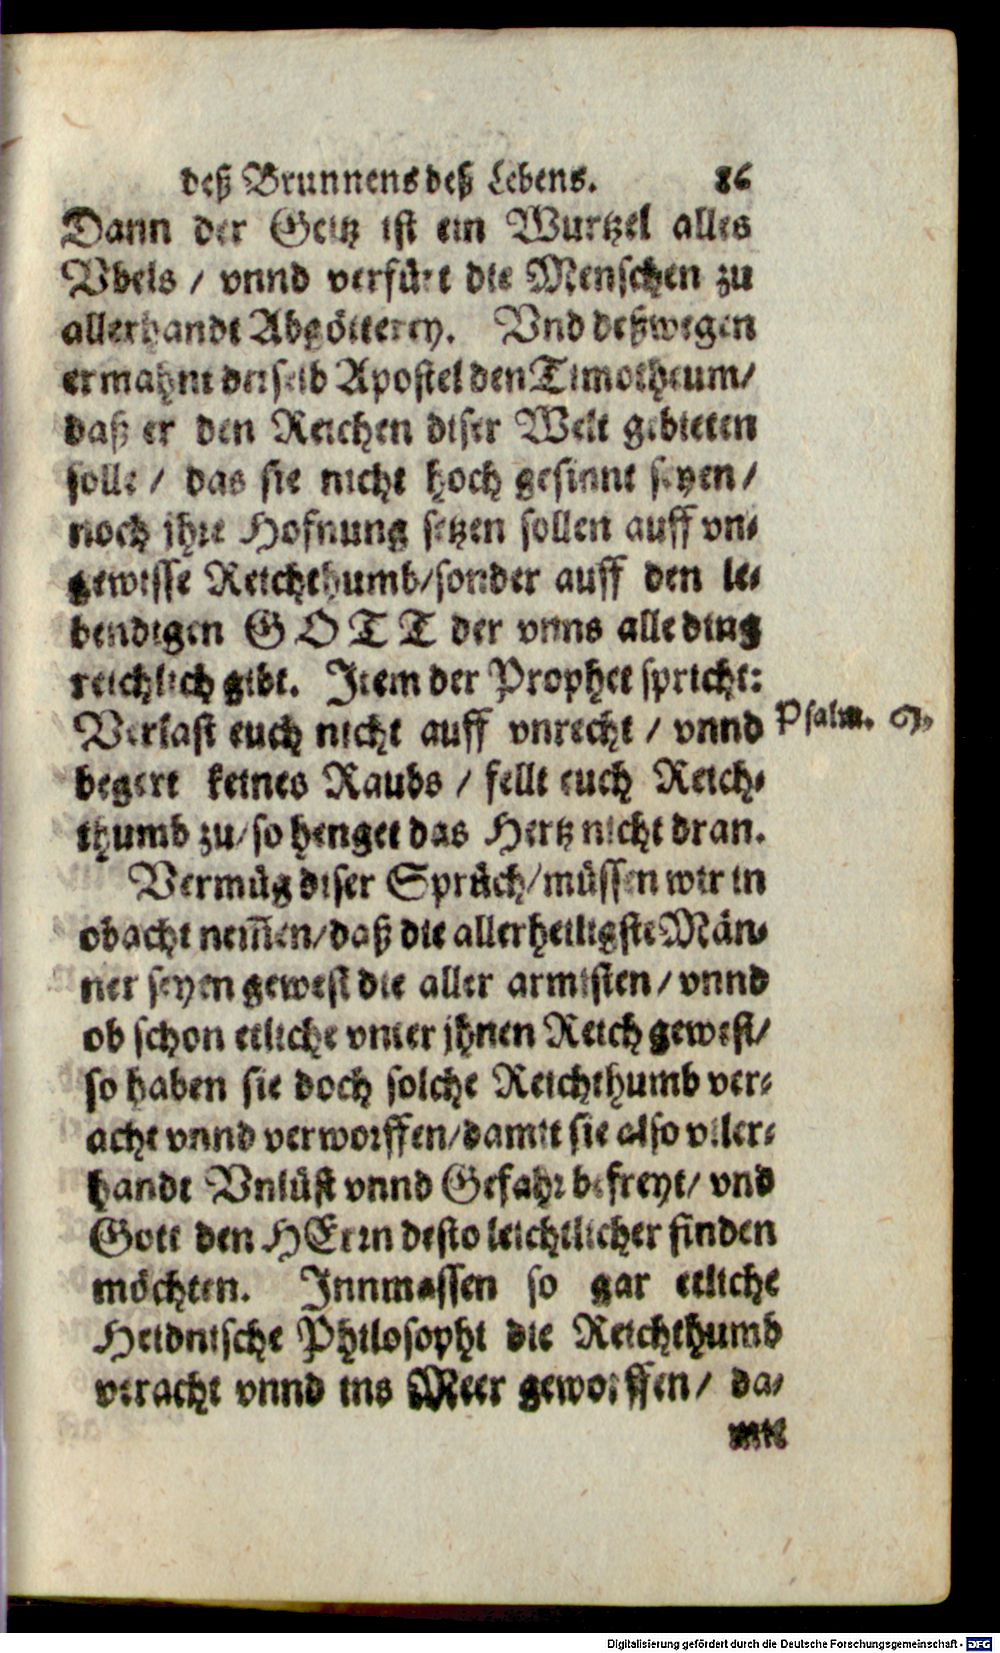 deß Brunnens deß Lebens. 86
Dann der Geitz ist ein Wurtzel alles
Vbels / vnnd verfürt die Menschen zu
allerhandt Abgötterey. Vnd deßwegen
ermahnt derselb Apostel den Timotheum/
daß er den Reichen diser Welt gebieten
solle / das sie nicht hoch gesinnt seyen/
noch jhre Hofnung setzen sollen auff vn-
gewisse Reichthumb/sonder auff den le-
bendigen GOTT der vnns alle ding
reichlich gibt. Item der Prophet spricht:
Verlast euch nicht auff vnrecht / vnnd
Psalm.
begert keines Raubs / fellt euch Reich-
thumb zu/so henget das Hertz nicht dran.
Vermüg diser Sprüch/müssen wir in
obacht nem̃en/daß die allerheiligste Män-
ner seyen gewest die aller armisten/ vnnd
ob schon etliche vnter jhnen Reich gewest/
so haben sie doch solche Reichthumb ver-
acht vnnd verworffen/damit sie also viler-
handt Vnlüst vnnd Gefahr befreyt/ vnd
Gott den HErrn desto leichtlicher finden
möchten. Innmassen so gar etliche
Heidnische Philosophi die Reichthumb
veracht vnnd ins Meer geworffen/ da-
mit
Digitalisierung gefördert durch die Deutsche Forschungsgemeinschaft - DFG